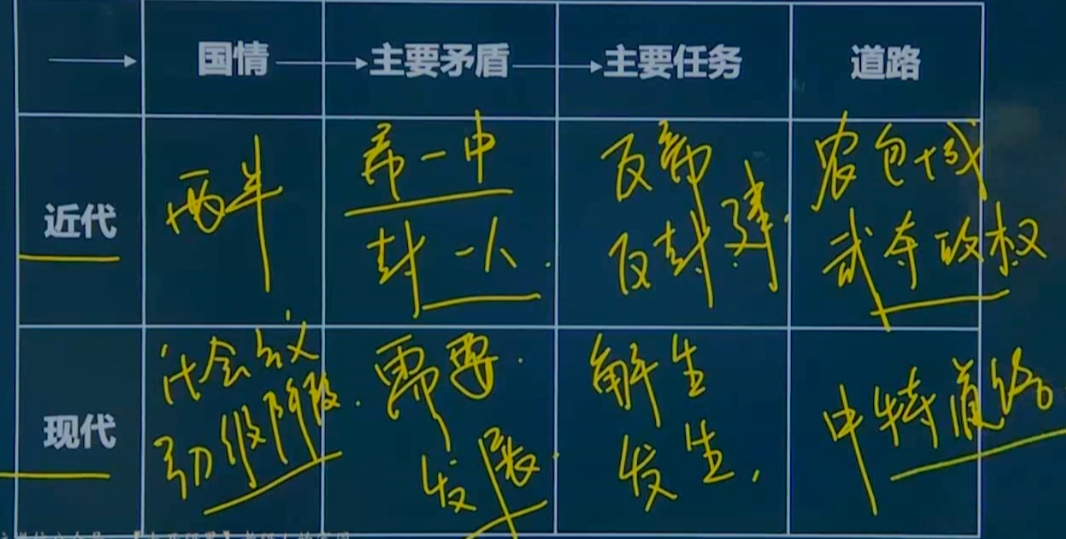 国情 主要矛盾 主要任务 道路
近代
两半
帝一中
封一人
反帝
反封建
农包城
武夺政权
现代
社会主义
初级阶段
需要
发展
解生
发生
中特道路